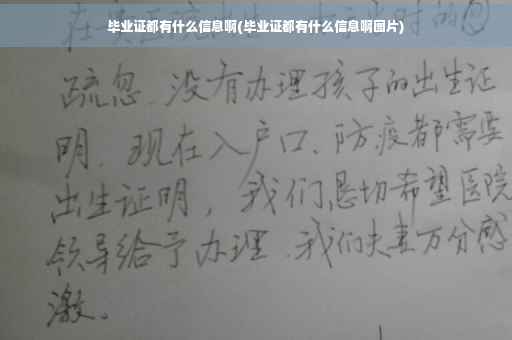 毕业证都有什么信息啊(毕业证都有什么信息啊图片)
时的
疏忽.没有办理孩子的出生证
明.现在入户口、防疫都需要
出生证明，我们恳切希望医院
领导给予办理.我们夫妻万分感
激。